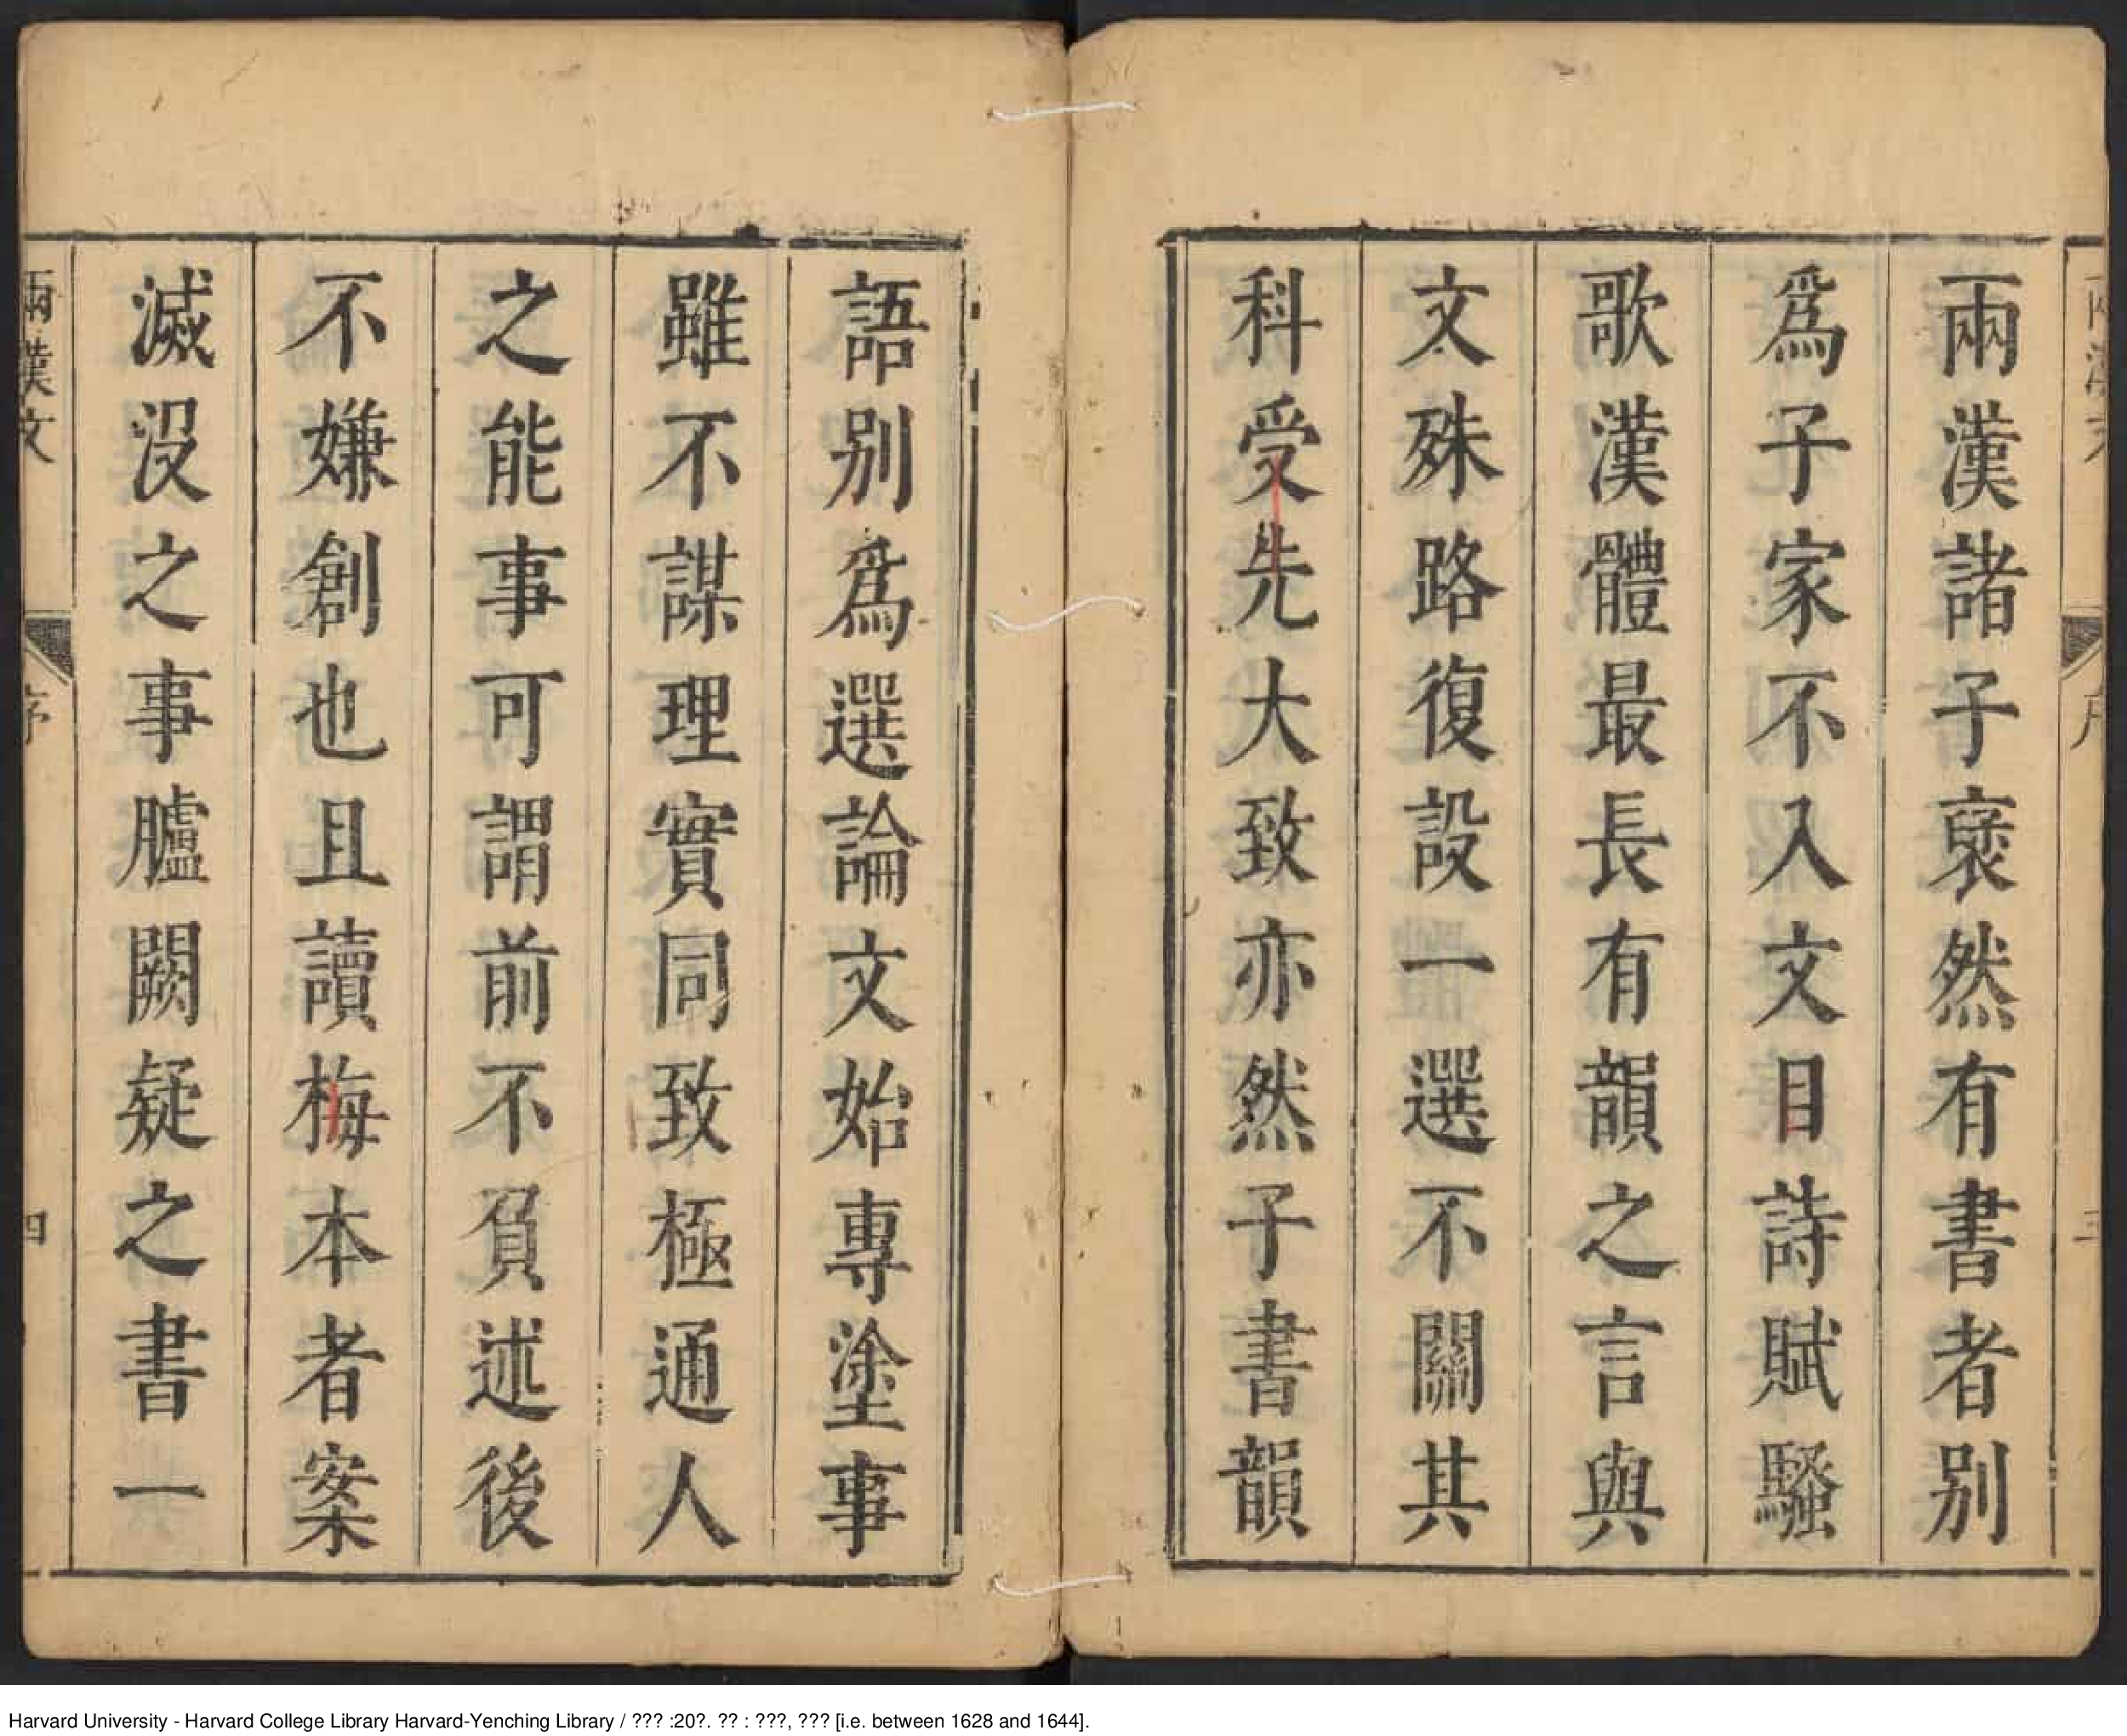 兩漢諸子裒然有書者别
爲子家不入文目詩賦騷
歌漢體最長有韻之言與
文殊路復設一選不關其
科受先大致亦然子書韻
語别爲選論文始專塗事
雖不謀理實同致極通人
之能事可謂前不負述後
不嫌創也且讀梅本者案
滅没之事臚闕疑之書一
兩漢文
序
四
Harvard University - Harvard College Library Harvard-Yenching Library / ??? :20?. ?? : ???, ??? [i.e. between 1628 and 1644].